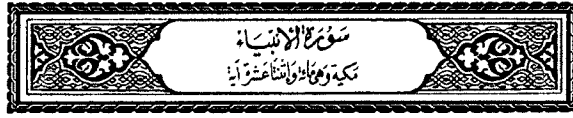 سُورَة الأنبيَاء
مكية وهى مائة واثنتا عشرة آية